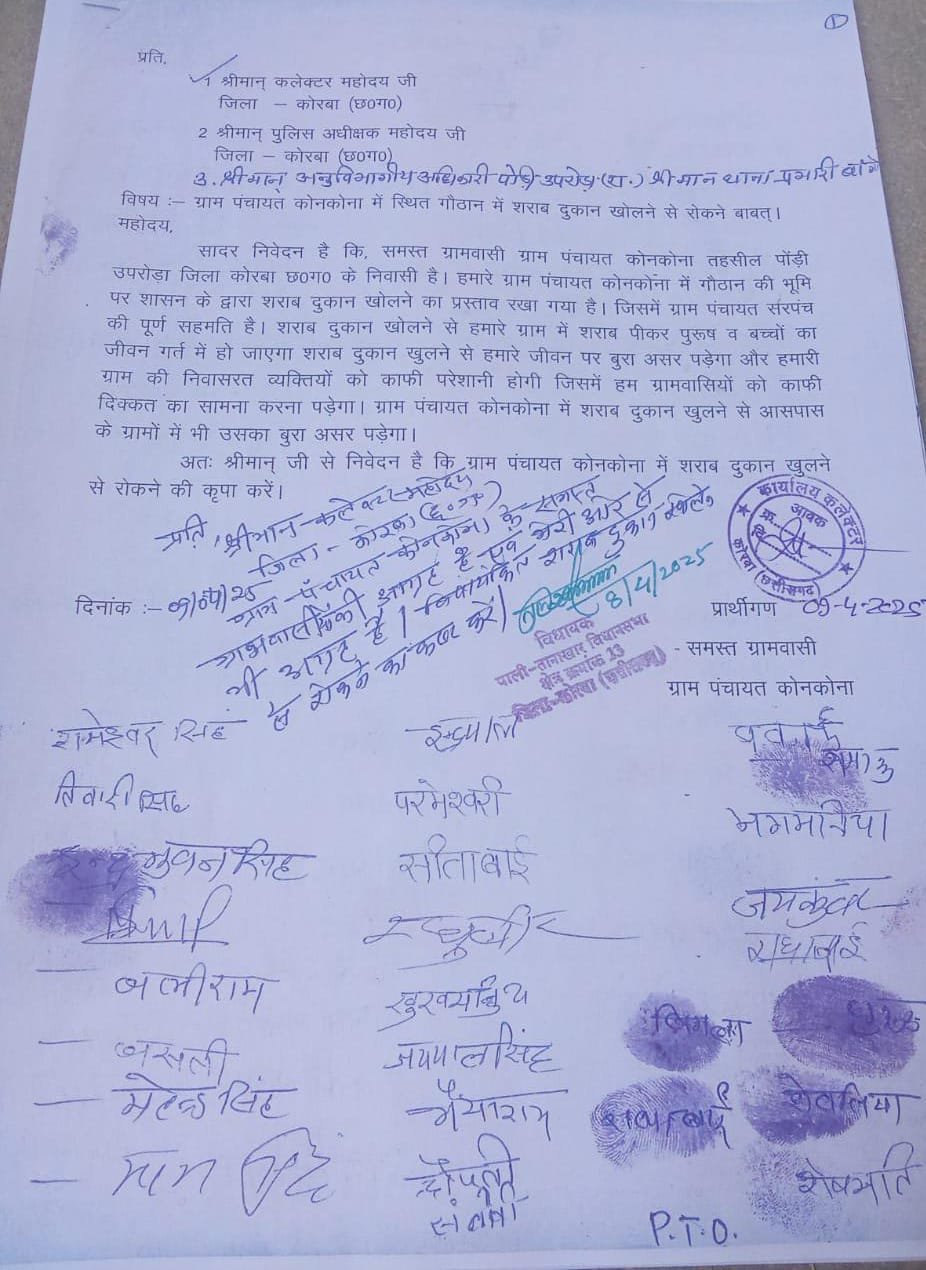 ①
प्रति,
✓1 श्रीमान् कलेक्टर महोदय जी
जिला – कोरबा (छ0ग0)
2 श्रीमान् पुलिस अधीक्षक महोदय जी
जिला – कोरबा (छ0ग0)
3. श्रीमान् अनुविभागीय अधिकारी पोंड़ी उपरोड़ा (रा.) श्रीमान थाना प्रभारी
विषय :– ग्राम पंचायत कोनकोना में स्थित गौठान में शराब दुकान खोलने से रोकने बाबत्।
महोदय,
सादर निवेदन है कि, समस्त ग्रामवासी ग्राम पंचायत कोनकोना तहसील पोंड़ी
उपरोड़ा जिला कोरबा छ0ग0 के निवासी है। हमारे ग्राम पंचायत कोनकोना में गौठान की भूमि
पर शासन के द्वारा शराब दुकान खोलने का प्रस्ताव रखा गया है। जिसमें ग्राम पंचायत सरपंच
की पूर्ण सहमति है। शराब दुकान खोलने से हमारे ग्राम में शराब पीकर पुरूष व बच्चों का
जीवन गर्त में हो जाएगा शराब दुकान खुलने से हमारे जीवन पर बुरा असर पड़ेगा और हमारी
ग्राम की निवासरत व्यक्तियों को काफी परेशानी होगी जिसमें हम ग्रामवासियों को काफी
दिक्कत का सामना करना पड़ेगा। ग्राम पंचायत कोनकोना में शराब दुकान खुलने से आसपास
के ग्रामों में भी उसका बुरा असर पड़ेगा।
अतः श्रीमान् जी से निवेदन है कि ग्राम पंचायत कोनकोना में शराब दुकान खुलने
से रोकने की कृपा करें।
प्रति, श्रीमान-कलेक्टर-महोदय
जिला - कोरबा (छ.ग.)
ग्राम-पंचायत-कोनकोना के समस्त
आग्रह है एवं मेरी ओर से
भी आग्रह है। शराब दुकान खोलने
से रोकने का कष्ट करें।
8/4/2025
विधायक
पाली-तानाखार विधानसभा
क्षेत्र क्रमांक 13
जिला-कोरबा (छत्तीसगढ़)
कार्यालय कलेक्टर
आवक
कोरबा (छत्तीसगढ़)
दिनांक :– 09/04/25
प्रार्थीगण 09-4-2025
- समस्त ग्रामवासी
ग्राम पंचायत कोनकोना
रामेश्वर सिंह
तिवारी सिंह
परमेश्वरी
भुवन सिंह
सीताबाई
जयकुंवर
राधाबाई
बलीराम
जयपालसिंह
महेन्द्र सिंह
मैयाराम
मान सिंह
शेषमति
P.T.O.